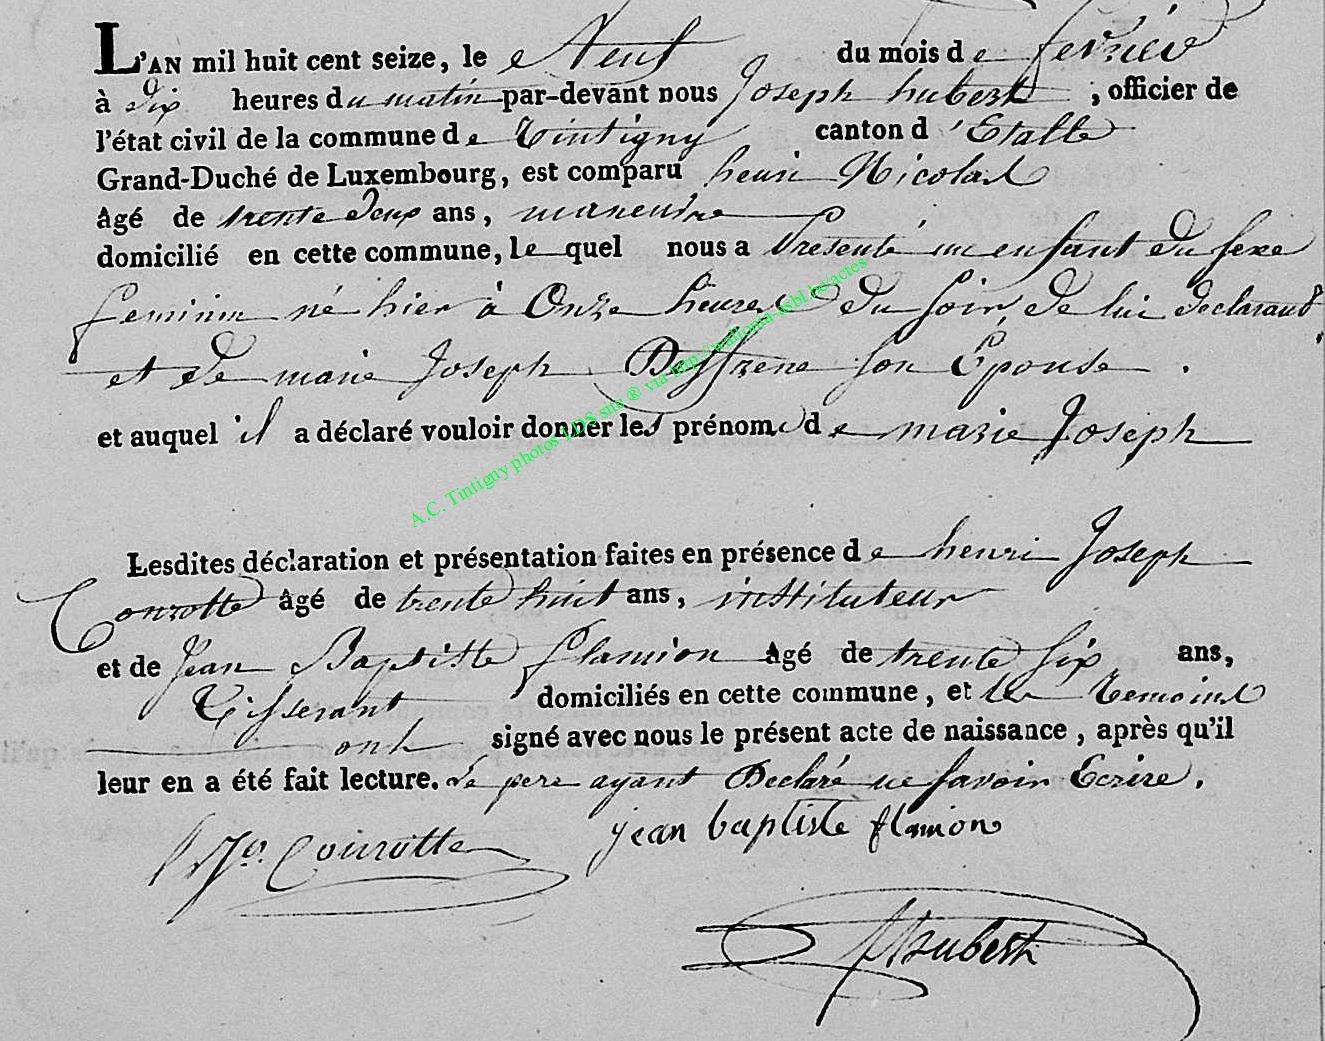 L'AN mil huit cent seize, le Neuf du mois de fevrier
à dix heures du matin par-devant nous Joseph hubert ; officier de
l'état civil de la commune de Tintigny canton d'Etalle
Grand-Duché de Luxembourg, est comparu henri Nicolas
âgé de trente deux ans, maneuvre
domicilié en cette commune, lequel nous a Presenté un enfant du sexe
feminin né hier à Onze heures du soir, de lui declarant
et de marie Joseph son Épouse.
et auquel il a déclaré vouloir donner les prénoms de marie Joseph
A.C. Tintigny photos LDS site ® via http://wallonia-asbl.be/actes
Lesdites déclaration et présentation faites en présence de henri Joseph
Courotte âgé de trente huit ans, instituteur
et de Jean Baptiste flamion âgé de trente six ans,
Tisserant domiciliés en cette commune, et les temoins
ont signé avec nous le présent acte de naissance, après qu'il
leur en a été fait lecture. Le pere ayant Declaré ne savoir Ecrire.
Courotte jean baptiste flamion
Hubert